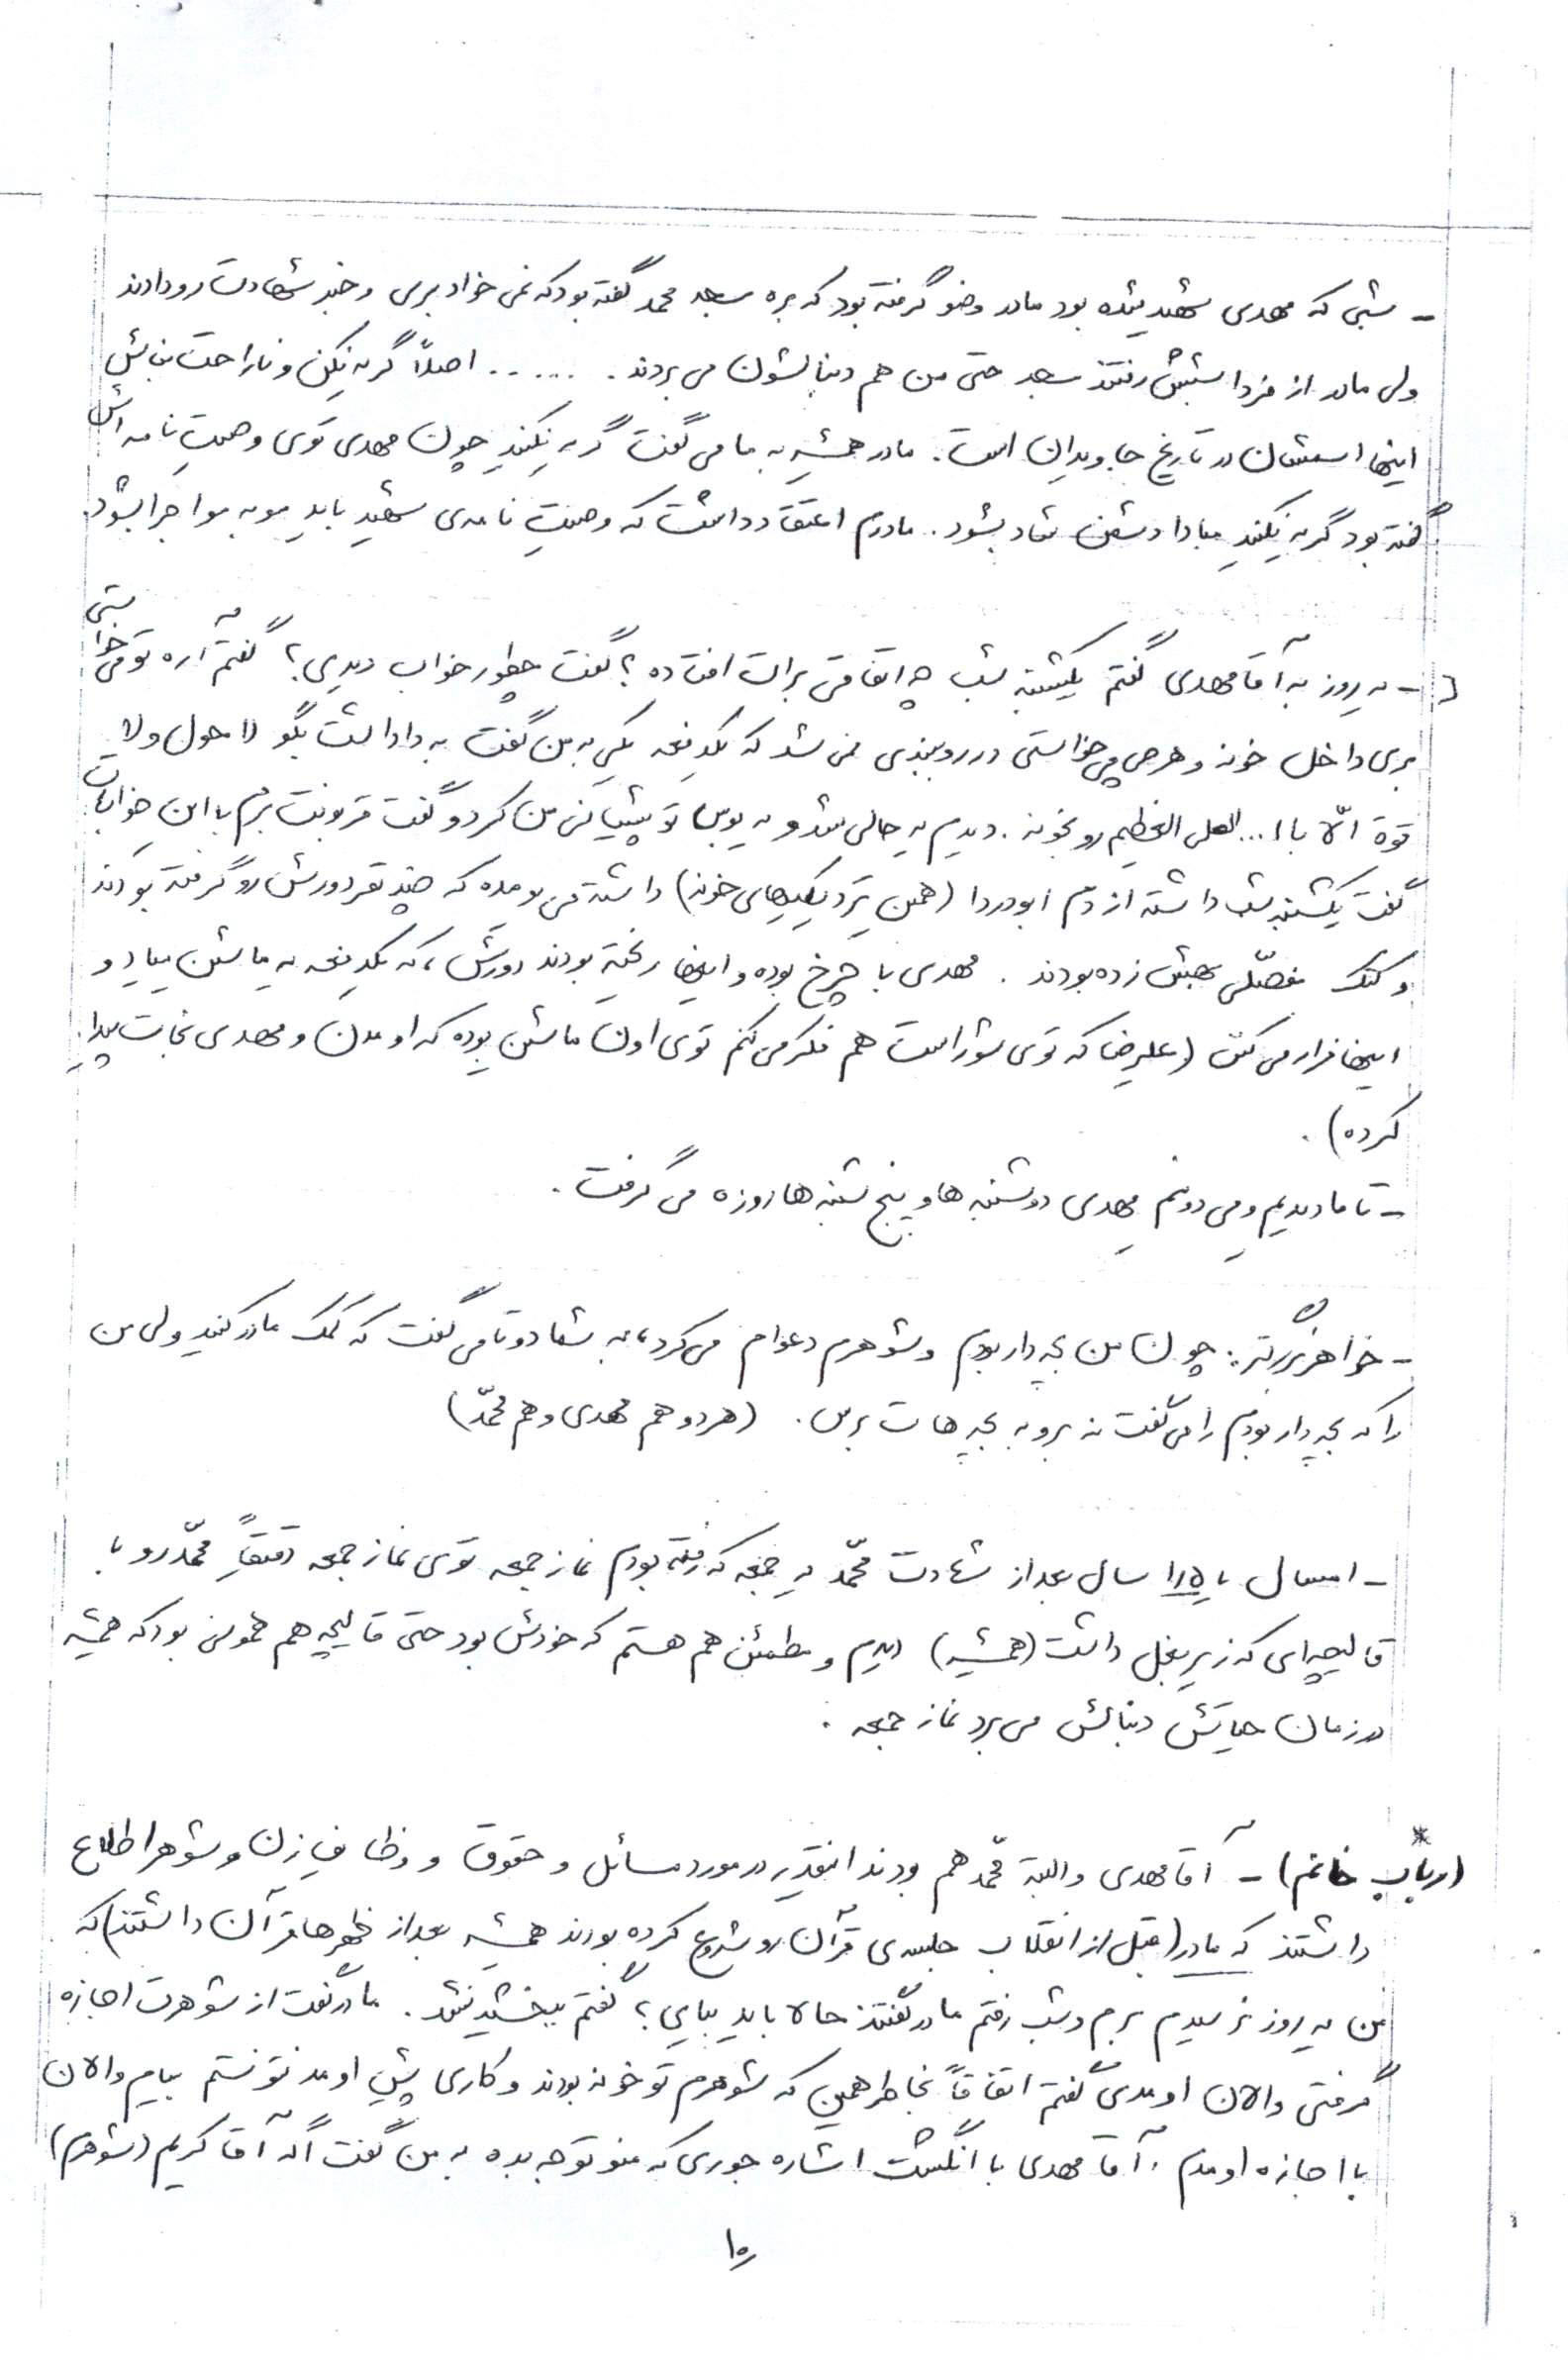 - شبی که مهدی شهید شده بود مادر وضو گرفته بود که بره مسجد محمد گفته بود که نمی خواد بری و خبر شهادت رو دادند
ولی مادر از فردا شبش رفتند مسجد حتی من هم دنبالشون می بردند . ..... اصلاً گریه نکن و ناراحت نباش
اینها اسمشان در تاریخ جاویدان است. مادر همیشه به ما می گفت گریه نکنید چون مهدی توی وصیت نامه اش
گفته بود گریه نکنید مبادا دشمن شاد بشود. مادرم اعتقاد داشت که وصیت نامه ی شهید باید مو به مو اجرا بشود.
- یه روز به آقا مهدی گفتم یکشنبه شب چه اتفاقی برات افتاده؟ گفت چطور خواب دیدی؟ گفتم آره تو می خواستی
بری داخل خونه و هر چی می خواستی در رو ببندی نمی شد که یکدفعه یکی به من گفت به داداشت بگو لا حول ولا
قوة الّا با ا... العلی العظیم رو بخونه. دیدم یه حالی شد و یه بوس تو پیشیانی من کرد و گفت قربونت برم با این خوابات
گفت یکشنبه شب داشته از دم ابودردا (همین نزدیکیهای خونه) داشته می یومده که چند نفر دورش رو گرفته بودند
و کتک مفصّلی بهش زده بودند. مهدی با چرخ بوده و اینها ریخته بودند دورش، که یکدفعه یه ماشین میاد و
اینها فرار می کنن (علیرضا که توی شورا است هم فکر می کنم توی اون ماشین بوده که اومدن و مهدی نجات پیدا
کرده).
- تا ما دیدیم و می دونم مهدی دوشنبه ها و پنج شنبه ها روزه می گرفت.
- خواهر بزرگتر: چون من بچه دار بودم و شوهرم دعوام می کرد، به شما دوتا می گفت که کمک مادر کنید ولی من
را که بچه دار بودم را می گفت نه برو به بچه هات برس. (هردو هم مهدی و هم محمّد)
- امسال یا ۱٫۵ سال بعد از شهادت محمّد یه جمعه که رفته بودم نماز جمعه توی نماز جمعه دقیقاً محمّد رو با
قالیچه ای که زیر بغل داشت (همیشه) دیدم و مطمئن هم هستم که خودش بود حتی قالیچه هم همونی بود که همیشه
در زمان حیاتش دنبالش می برد نماز جمعه.
(رباب خانم) - آقا مهدی و البته محمّد هم بودند اینقدر در مورد مسائل و حقوق و وظایف زن و شوهر اطلاع
داشتند که مادر (قبل از انقلاب جلسه ی قرآن رو شروع کرده بودند همیشه بعد از ظهرها قرآن داشتند) که
من یه روز نرسیدم برم و شب رفتم مادر گفتند حالا باید بیایی؟ گفتم ببخشید نشد. مادر گفت از شوهرت اجازه
گرفتی و الان اومدی گفتم اتفاقاً بخاطر همین که شوهرم تو خونه بودند و کاری پیش اومد نتونستم بیام و الان
با اجازه اومدم. آقا مهدی با انگشت اشاره جوری که منو توجه بده به من گفت اگه آقا کریم (شوهرم)
۱۵